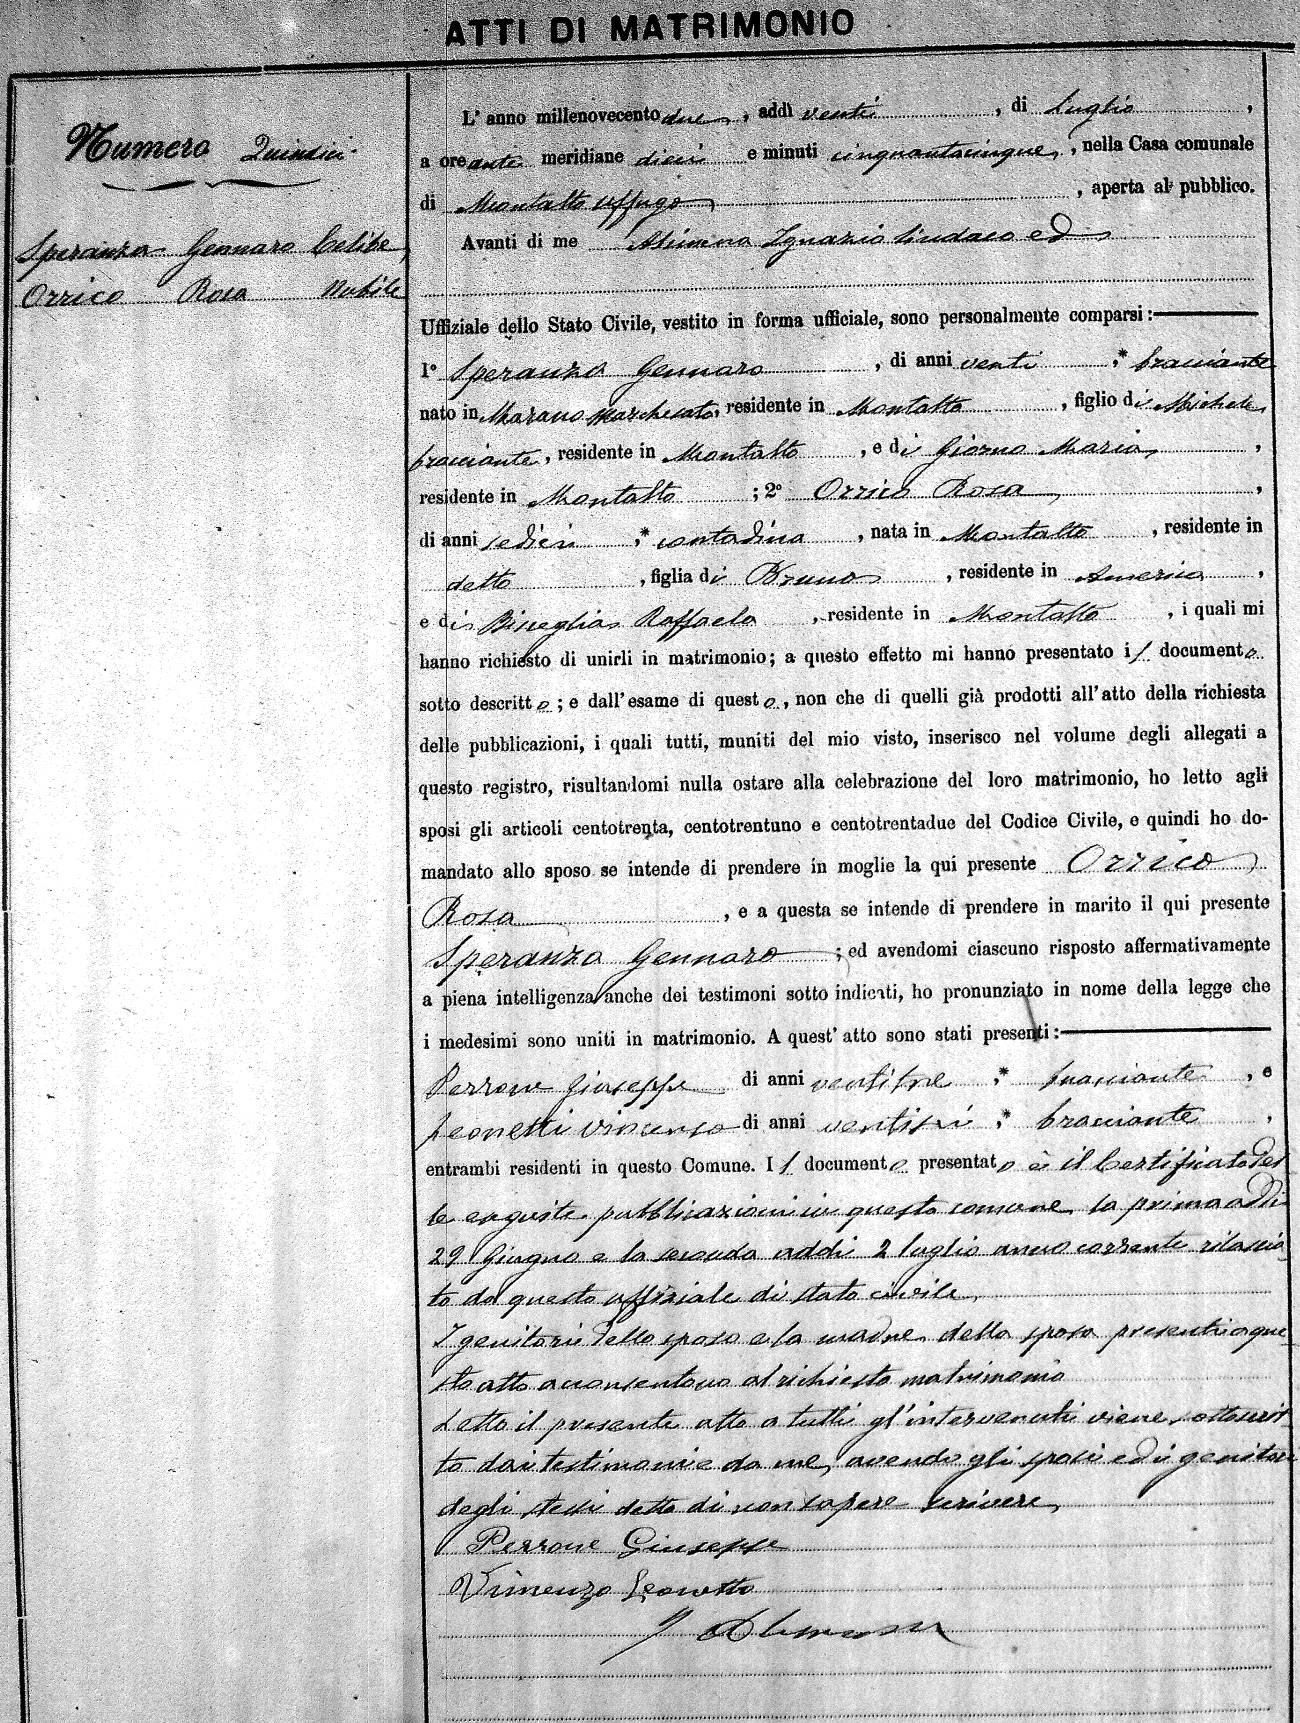 ATTI DI MATRIMONIO
Numero Quindici
Speranza Gennaro Celibe
Orrico Rosa Nubile
L' anno millenovecento due, addì venti, di Luglio,
a ore ante meridiane dieci e minuti cinquantacinque, nella Casa comunale
di Montalto Uffugo, aperta al pubblico.
Avanti di me Alimena Ignazio Sindaco ed
Uffiziale dello Stato Civile, vestito in forma ufficiale, sono personalmente comparsi:
1° Speranza Gennaro, di anni venti,* bracciante
nato in Marano Marchesato, residente in Montalto, figlio di Michele
bracciante, residente in Montalto, e di Giorno Maria,
residente in Montalto; 2° Orrico Rosa,
di anni sedici,* contadina, nata in Montalto, residente in
detto, figlia di Bruno, residente in America,
e di Bisceglia Raffaela, residente in Montalto, i quali mi
hanno richiesto di unirli in matrimonio; a questo effetto mi hanno presentato il documento
sotto descritto; e dall'esame di questo, non che di quelli già prodotti all'atto della richiesta
delle pubblicazioni, i quali tutti, muniti del mio visto, inserisco nel volume degli allegati a
questo registro, risultandomi nulla ostare alla celebrazione del loro matrimonio, ho letto agli
sposi gli articoli centotrenta, centotrentuno e centotrentadue del Codice Civile, e quindi ho do-
mandato allo sposo se intende di prendere in moglie la qui presente Orrico
Rosa, e a questa se intende di prendere in marito il qui presente
Speranza Gennaro; ed avendomi ciascuno risposto affermativamente
a piena intelligenza anche dei testimoni sotto indicati, ho pronunziato in nome della legge che
i medesimi sono uniti in matrimonio. A quest' atto sono stati presenti:
Perrone Giuseppe di anni ventitre,* bracciante, e
Leonetti Vincenzo di anni ventisei,* bracciante,
entrambi residenti in questo Comune. Il documento presentato è il Certificato del
le eseguite pubblicazioni in questo comune la prima addì
29 Giugno e la seconda addì 2 luglio anno corrente rilascia
to da questo uffiziale di stato civile
I genitori dello sposo e la madre della sposa presenti a que
sto atto acconsentono al richiesto matrimonio
Letto il presente atto a tutti gl'intervenuti viene sottoscrit
to dai testimoni e da me, avendo gli sposi ed i genitori
degli stessi detto di non sapere scrivere
Perrone Giuseppe
Vincenzo Leonetti
I Alimena